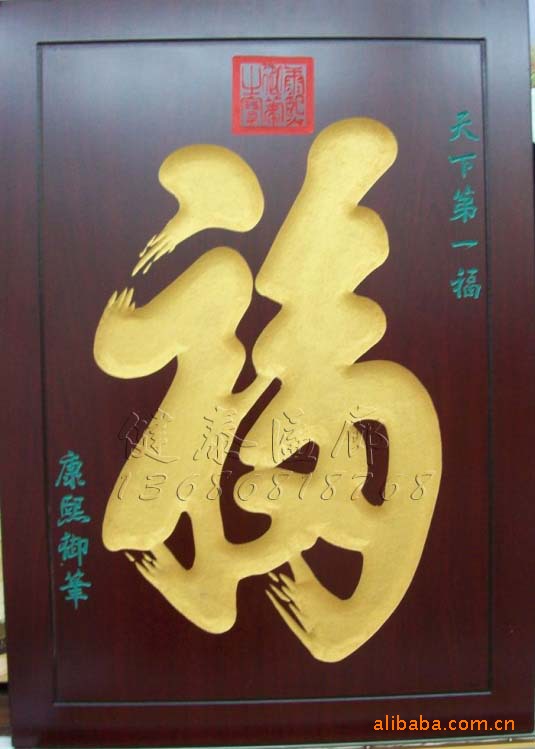 康熙御筆之寶
天下第一福
福
康熙御筆
健泰画廊
13080818708
alibaba.com.cn